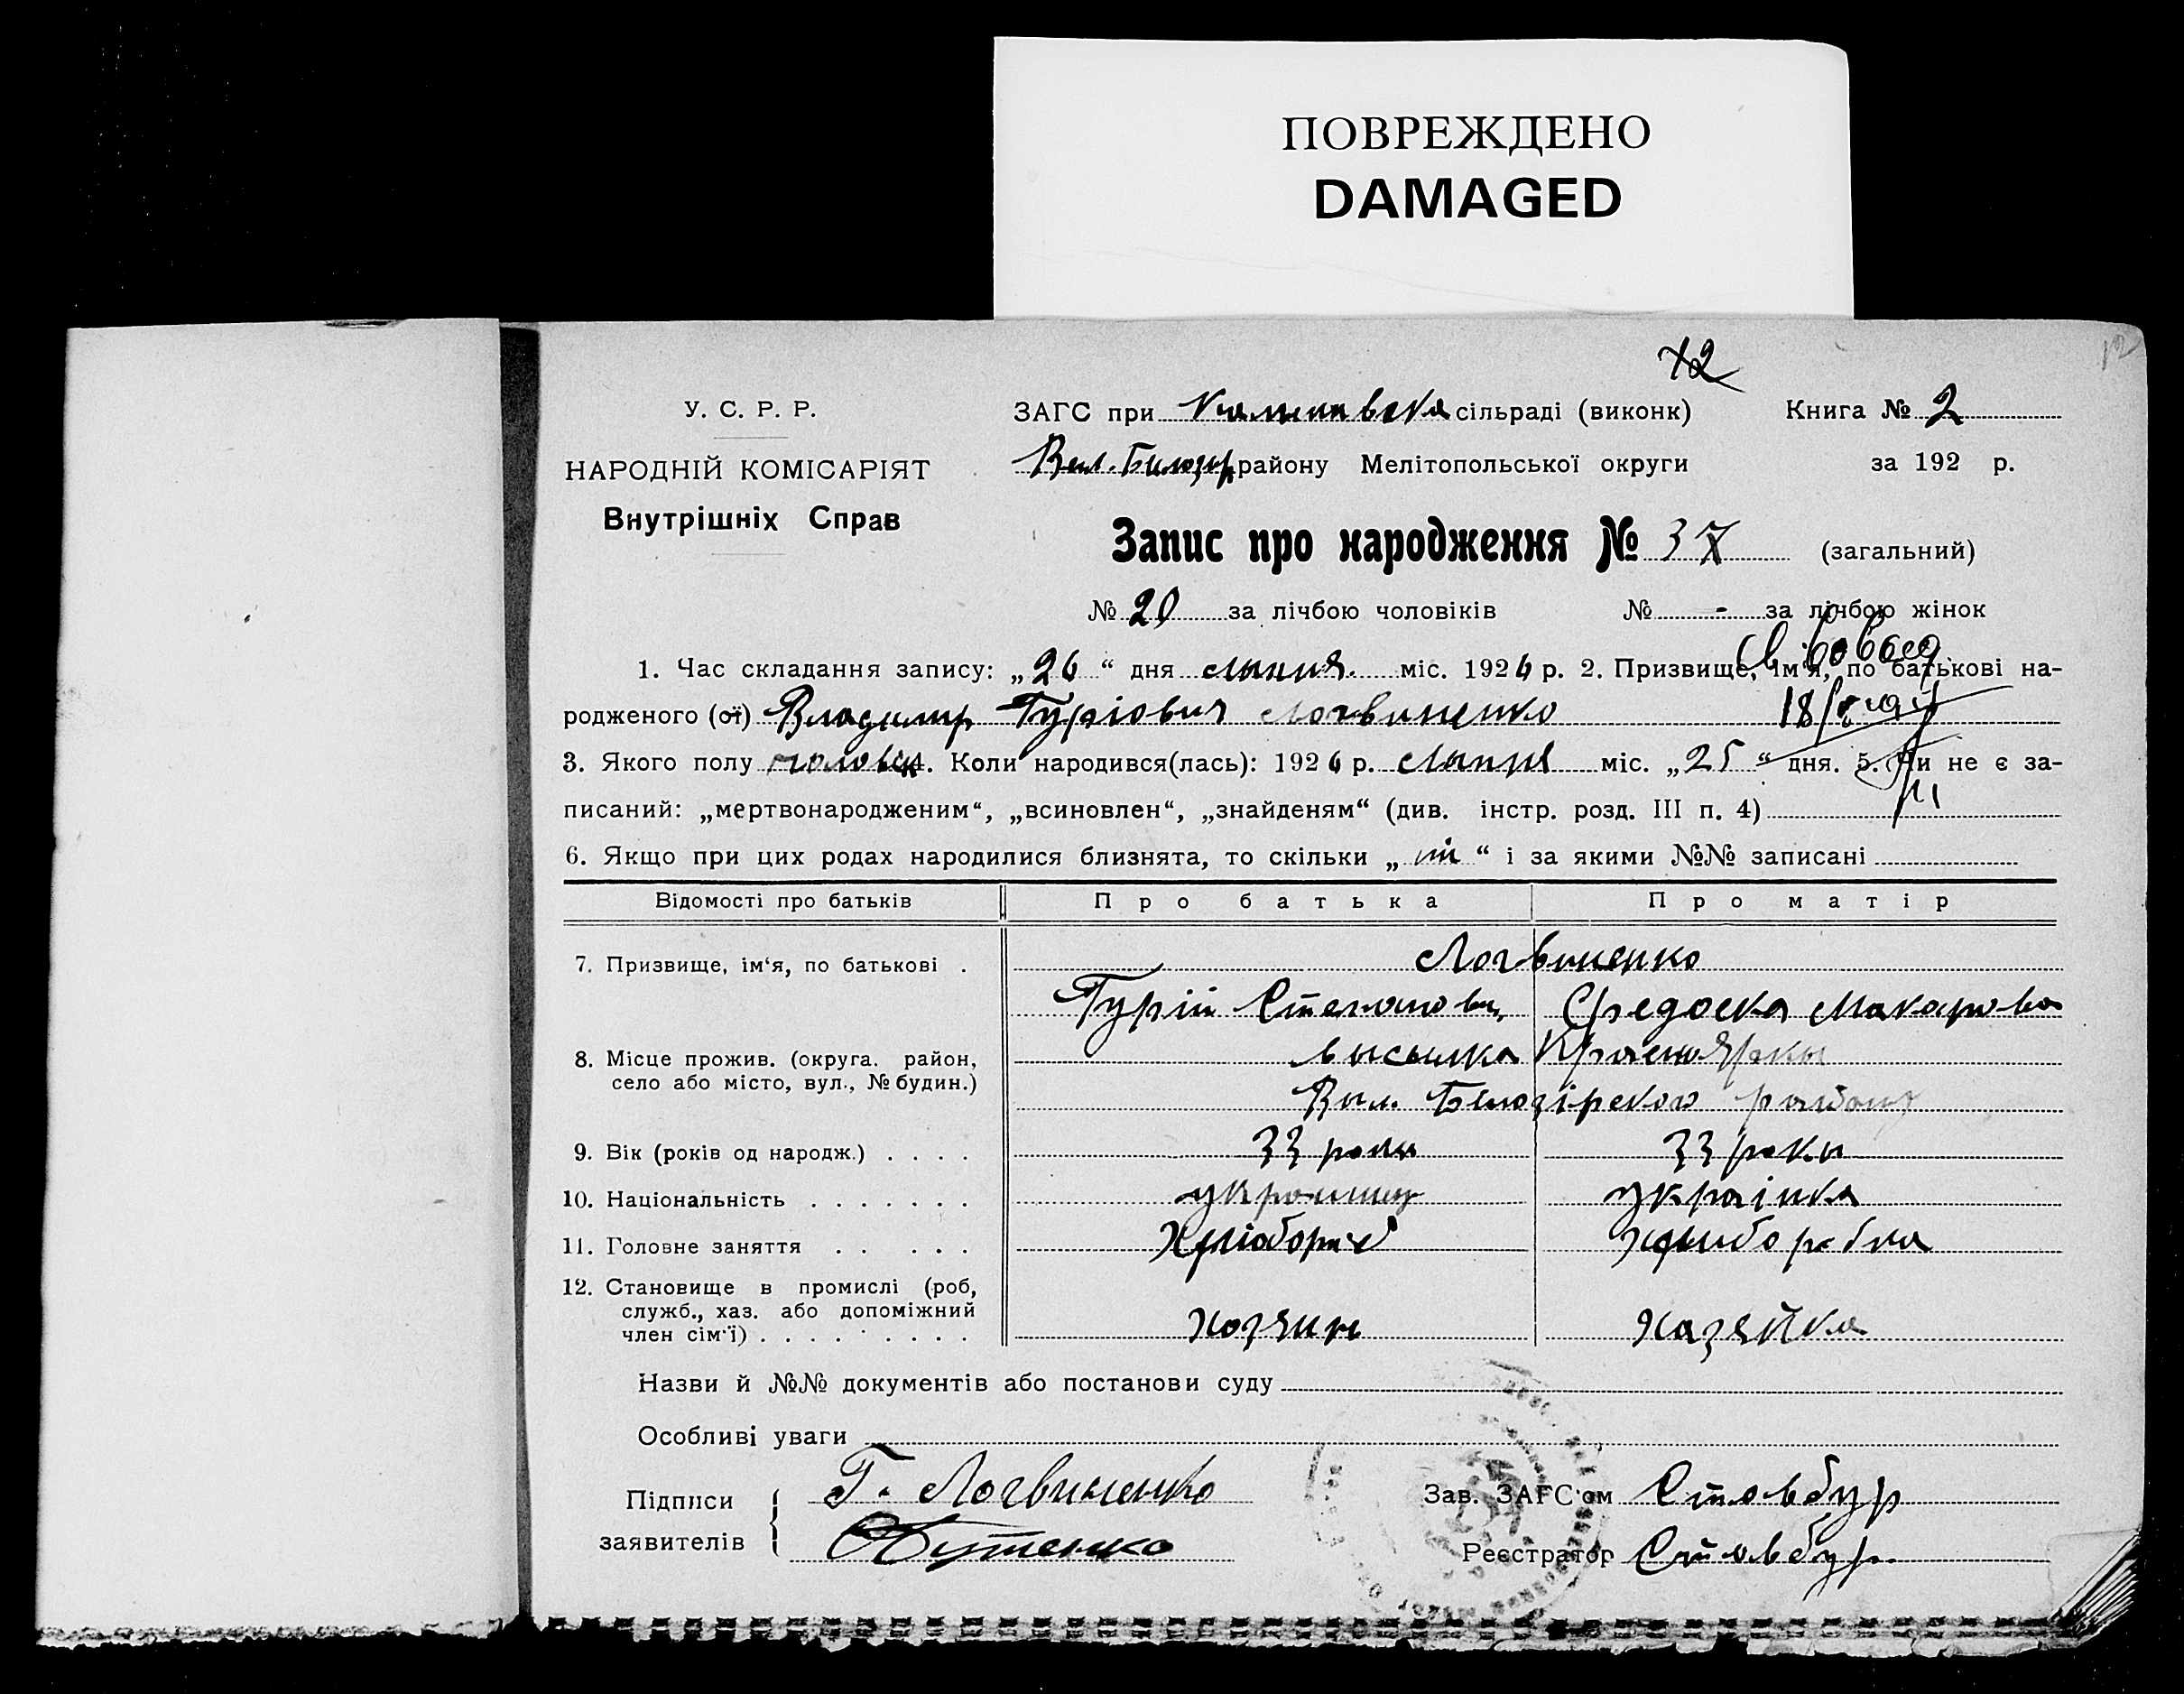 ПОВРЕЖДЕНО
DAMAGED
12
12
У. С. Р. Р.
НАРОДНІЙ КОМІСАРІЯТ
Внутрішніх Справ
ЗАГС при сільраді (виконк) Книга № 2
Вел. Білозер району Мелітопольської округи за 192 р.
Запис про народження № 37 (загальний)
№ 20 за лічбою чоловіків № - за лічбою жінок
1. Час складання запису: „26“ дня липня міс. 1926 р. 2. Призвище, ім'я, по батькові на-
родженого (ої) Владимир Гурiович Логвиненко
3. Якого полу чоловіч. Коли народився(лась): 1926 р. Липня міс. „25“ дня. 5. Чи не є за-
писаний: „мертвонародженим“, „всиновлен“, „знайденям“ (див. інстр. розд. III п. 4)
6. Якщо при цих родах народилися близнята, то скільки „ні“ і за якими №№ записані
Відомості про батьків Про батька Про матір
7. Призвище, ім‘я, по батькові . Логвиненко
Гурій Степанович Федоска Макарова
8. Місце прожив. (округа. район,
село або місто, вул., № будин.)
Вил. Білозірского району
9. Вік (років од народж.) . . . . 33 роки 33 роки
10. Національність . . . . . . . украинец украінка
11. Головне заняття . . . . . Хлібороб хлиборобка
12. Становище в промислі (роб,
служб., хаз. або допоміжний
член сім'ї) . . . . . . . . . хозяин хазяйка
Назви й №№ документів або постанови суду
Особливі уваги
Підписи заявителів
Г. Логвиненко
Бутенко
Зав. ЗАГС'ом Стовбур
Реєстратор Стовбур